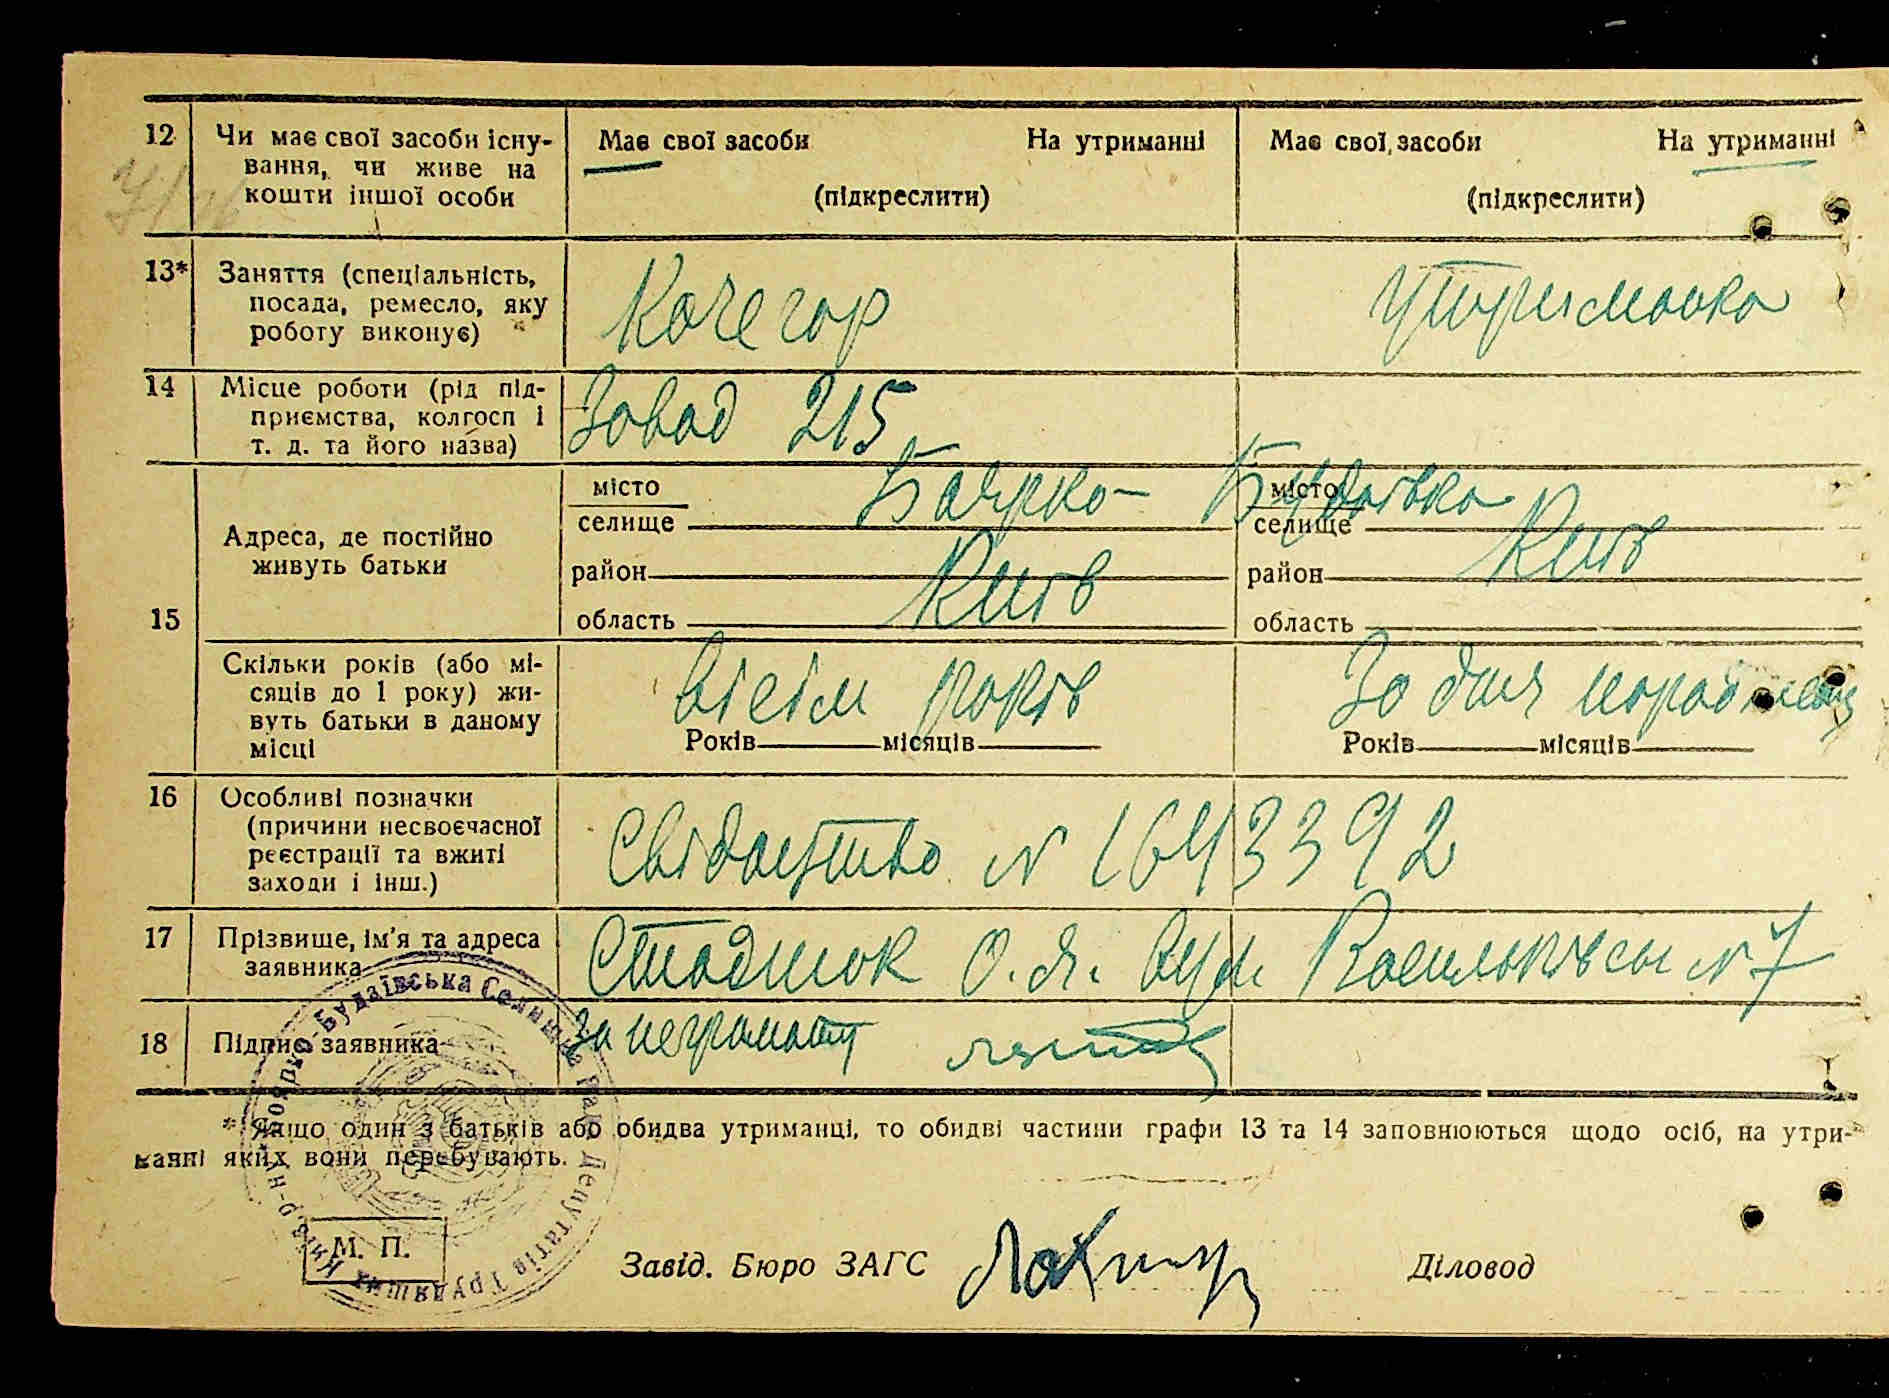 12 Чи має свої засоби існу- Має свої засоби На утриманні Має свої засоби На утриманні
вання, чи живе на
кошти іншої особи (підкреслити) (підкреслити)
13* Заняття (спеціальність,
посада, ремесло, яку Кочегар Утриманка
роботу виконує)
14 Місце роботи (рід під-
приємства, колгосп і Завод 215
т. д. та його назва)
місто Боярка- місто Будаївка
селище селище
Адреса, де постійно
живуть батьки район Київ район Київ
15 область область
Скільки років (або мі-
сяців до 1 року) жи- вісім років За дня
вуть батьки в даному
місці Років місяців Років місяців
16 Особливі позначки
(причини несвоєчасної
реєстрації та вжиті Свідоцтво № 1643392
заходи і інш.)
17 Прізвище, ім'я та адреса
заявника Стаднюк О. Я. вул. Васильківська № 7
18 Підпис заявника за неграмотну
* Якщо один з батьків або обидва утриманці, то обидві частини графи 13 та 14 заповнюються щодо осіб, на утри-
манні яких вони перебувають.
Київ. р-ну Боярко-Будаївська Селищна Рада Депутатів Трудящих
М. П.
Завід. Бюро ЗАГС Діловод